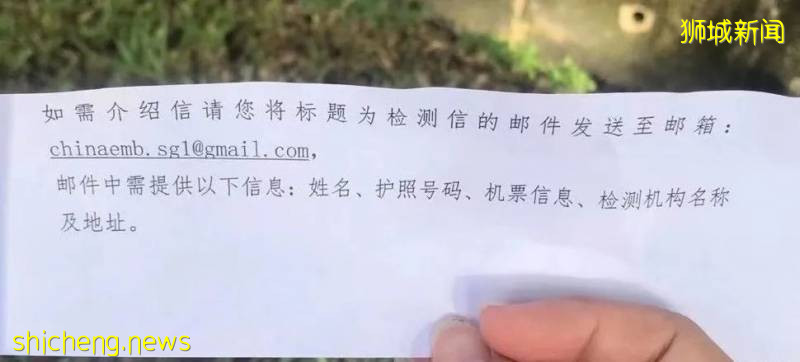 狮城新闻
如需介绍信请您将标题为检测信的邮件发送至邮箱：
chinaemb.sg1@gmail.com，
邮件中需提供以下信息：姓名、护照号码、机票信息、检测机构名称
及地址。
shicheng.news